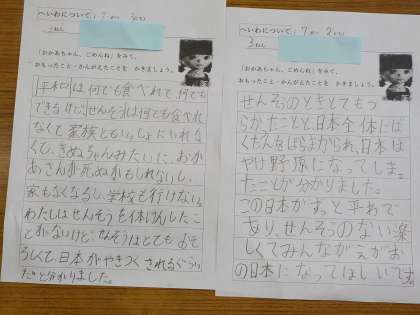 へいわについて
「おかあちゃん、ごめんね」をみて、
おもったこと・かんがえたことを かきましょう。
平和は何でも食べれて何でも
できるけど、せんそうは何でも食べれ
なくて家族ともいっしょにいれな
くて、きぬちゃんみたいに、おか
あさんが死ぬかもしれないし、
家もなくなるし、学校も行けない。
わたしはせんそうを体けんしたこ
とがないけど、せんそうはとてもおそ
ろしくて、日本がやきつくされるぐらい
だと分かりました。
へいわについて 7
3
「おかあちゃん、ごめんね」をみて、
おもったこと・かんがえたことを かきましょう。
せんそうのときとてもつ
らかったことと、日本全体にば
くだんをばらまかれ、日本は
やけ野原になってしま
たことが分かりました。
この日本がずっと平わで
あり、せんそうのない楽
しくてみんながえがお
の日本になってほしいです。